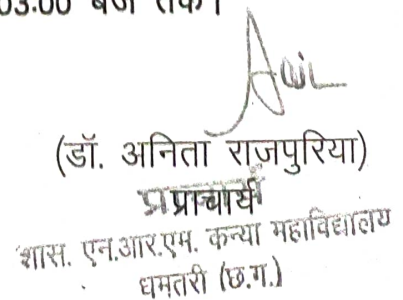 03:00 बजे तक।
(डॉ. अनिता राजपुरिया)
प्राचार्य
शास. एन.आर.एम. कन्या महाविद्यालय
धमतरी (छ.ग.)